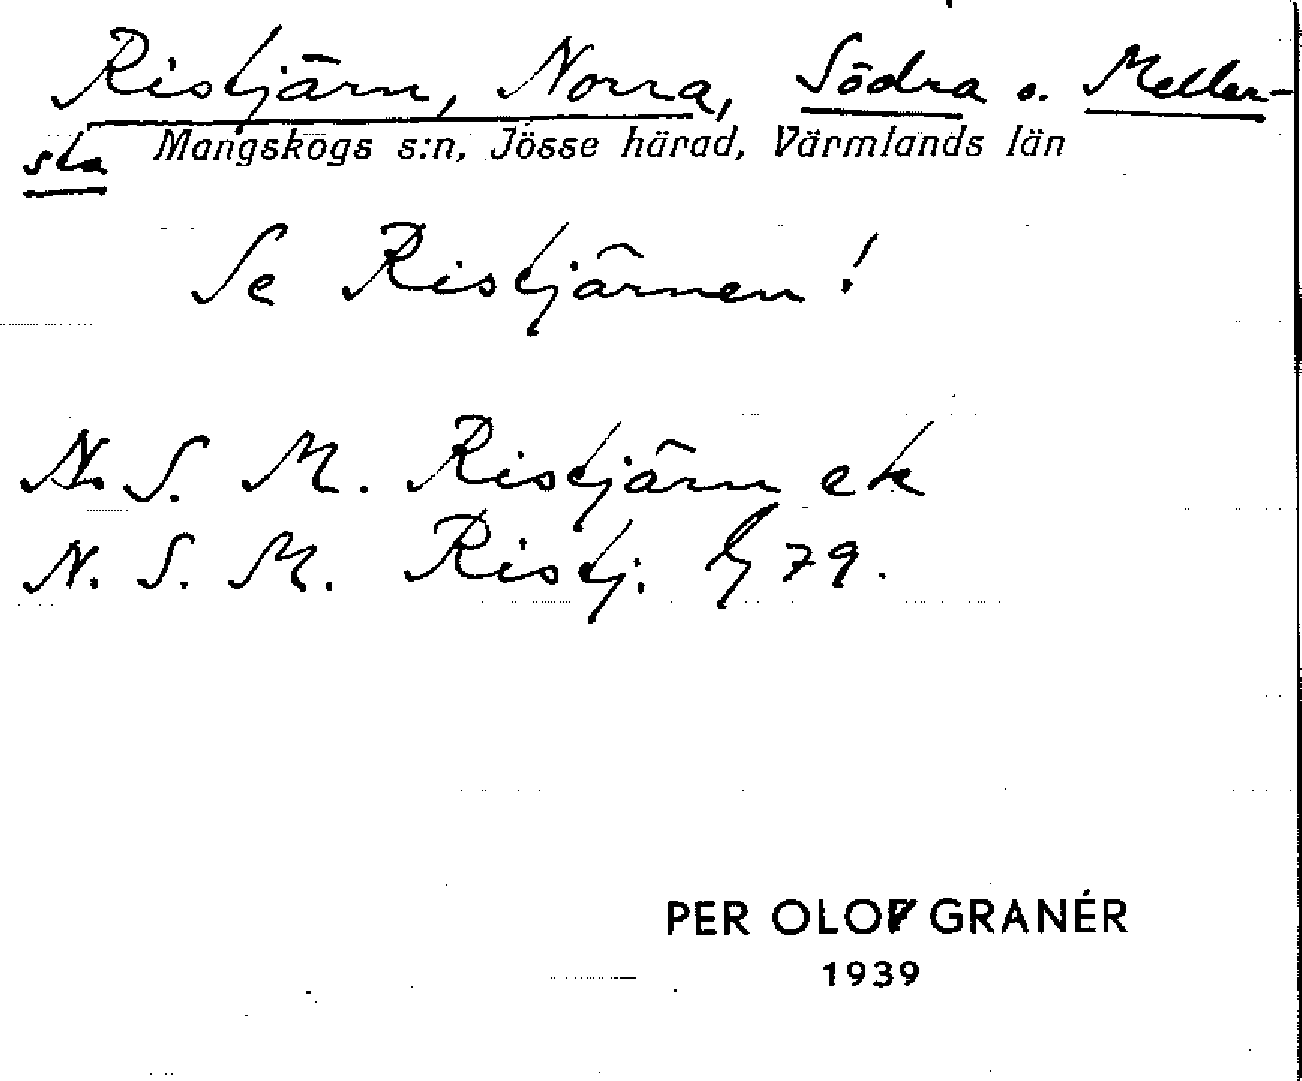 Ristjärn, Norra, Södra o. Meller-
sta Mangskogs s:n, Jösse härad, Värmlands län
Se Ristjärnen!
N. S. M. Ristjärn ek
N. S. M. Ristj. 79.
PER OLOF GRANÉR
1939